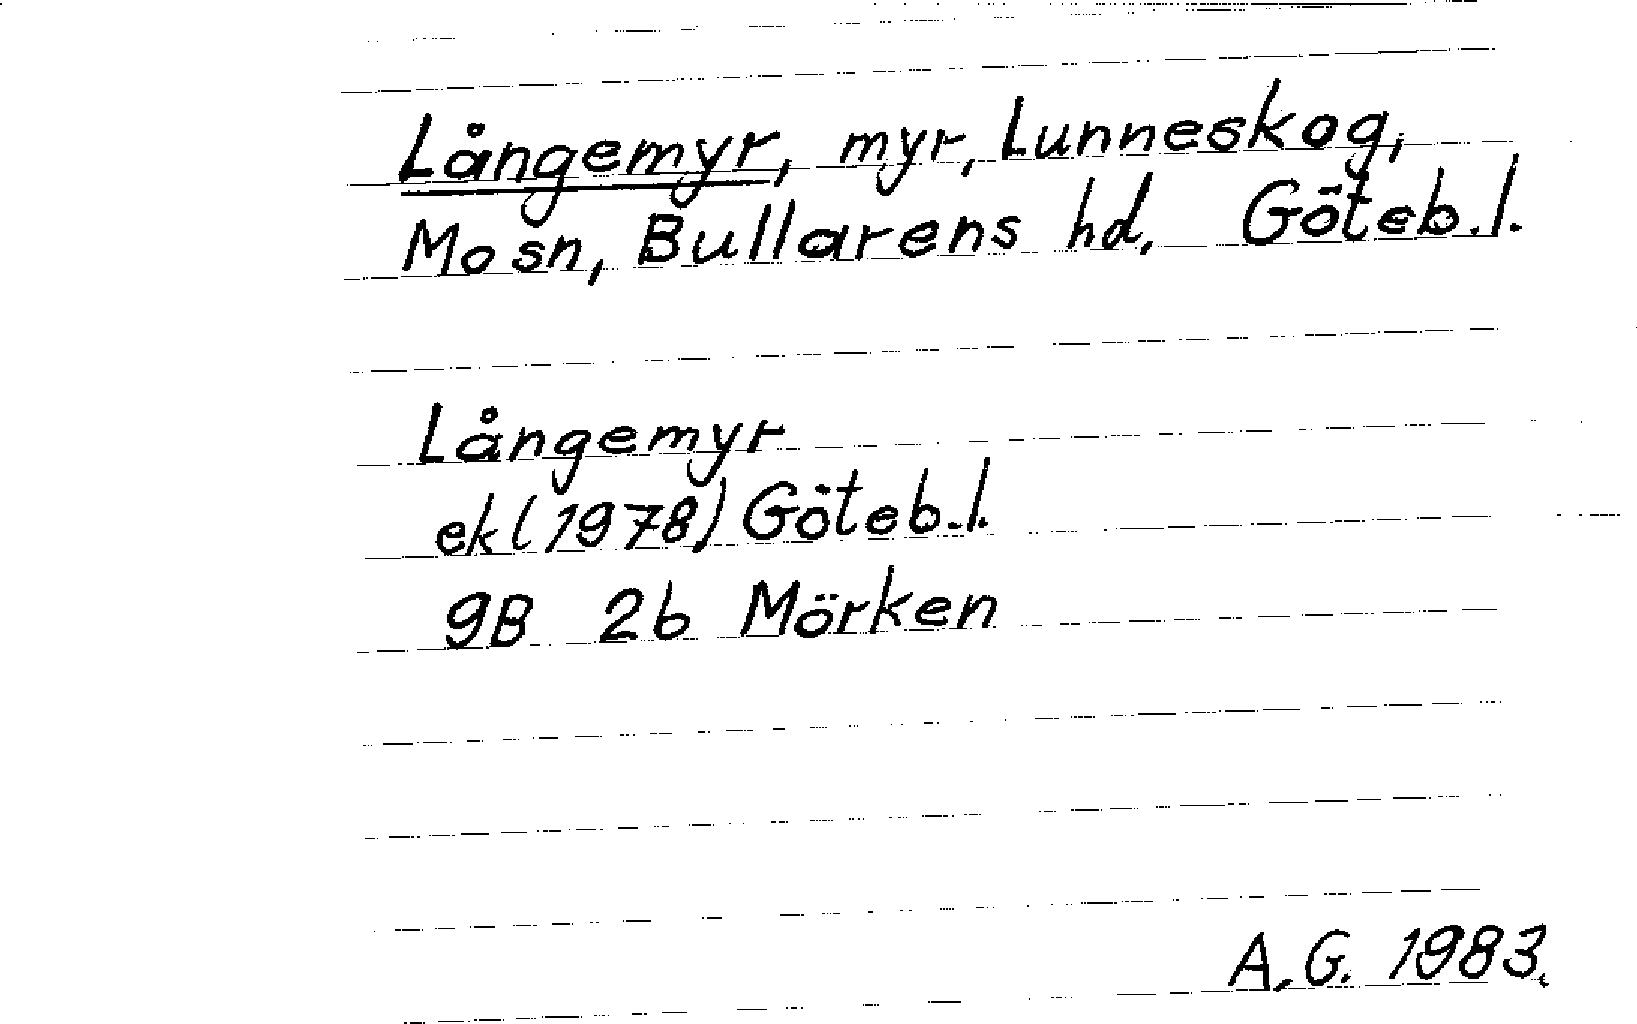 Långemyr, myr, Lunneskog,
Mo sn, Bullarens hd, Göteb.l.
Långemyr
ekl (1978) Göteb.l.
9B 2b Mörken
A.G. 1983.